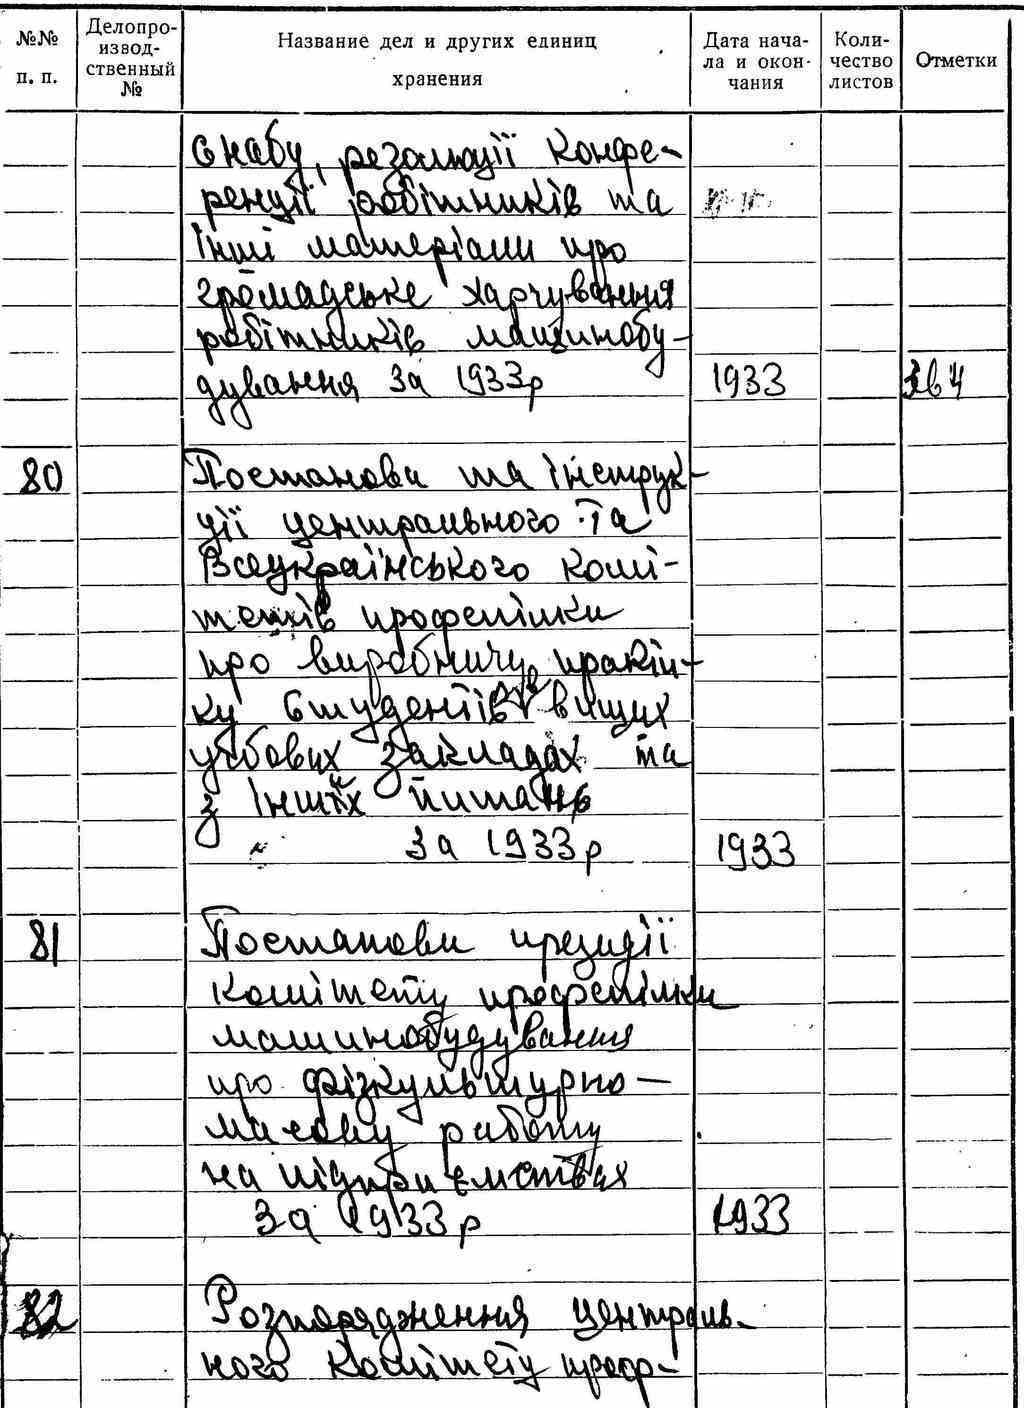 №№ п. п.
Делопроизводственный №
Название дел и других единиц хранения
Дата начала и окончания
Количество листов
Отметки
снабу, резолюції конфе-
ренції робітників та
інші матеріали про
громадське харчування
робітників машинобу-
дування за 1933р 1933
80 Постанови та інструк-
ції центрального та
Всеукраїнського комі-
тетів профспілки
про виробничу практи-
ку студентів в вищих
учбових закладах та
з інших питань
за 1933р 1933
81 Постанови президії
комітету профспілки
машинобудування
про фізкультурно-
масову работу
на підприємствах
за 1933р 1933
82 Розпорядження централь-
ного комітету проф-